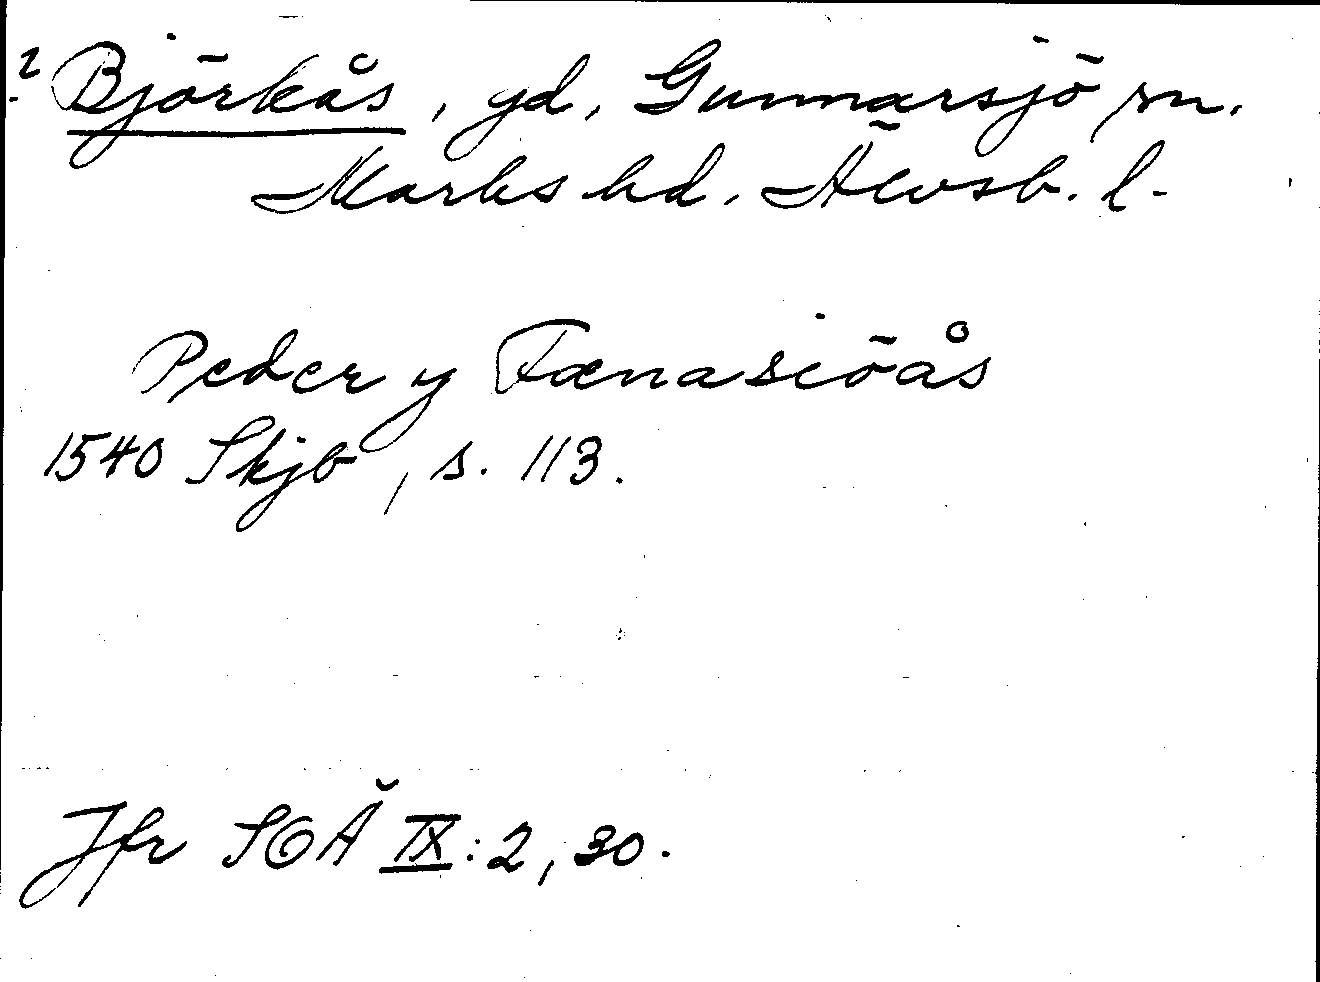 ? Björkås, gd, Gunnarsjö sn.
Marks hd. Älvsb. l.
Peder y Fænasiöås
1540 Skjb, s. 113.
Jfr SOÄ IX:2, 30.